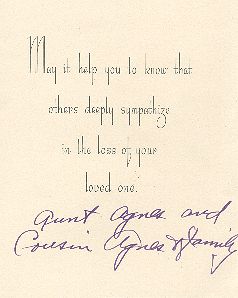 May it help you to know that
others deeply sympathize
in the loss of your
loved one.
Aunt Agnes and
Cousin Agnes & family